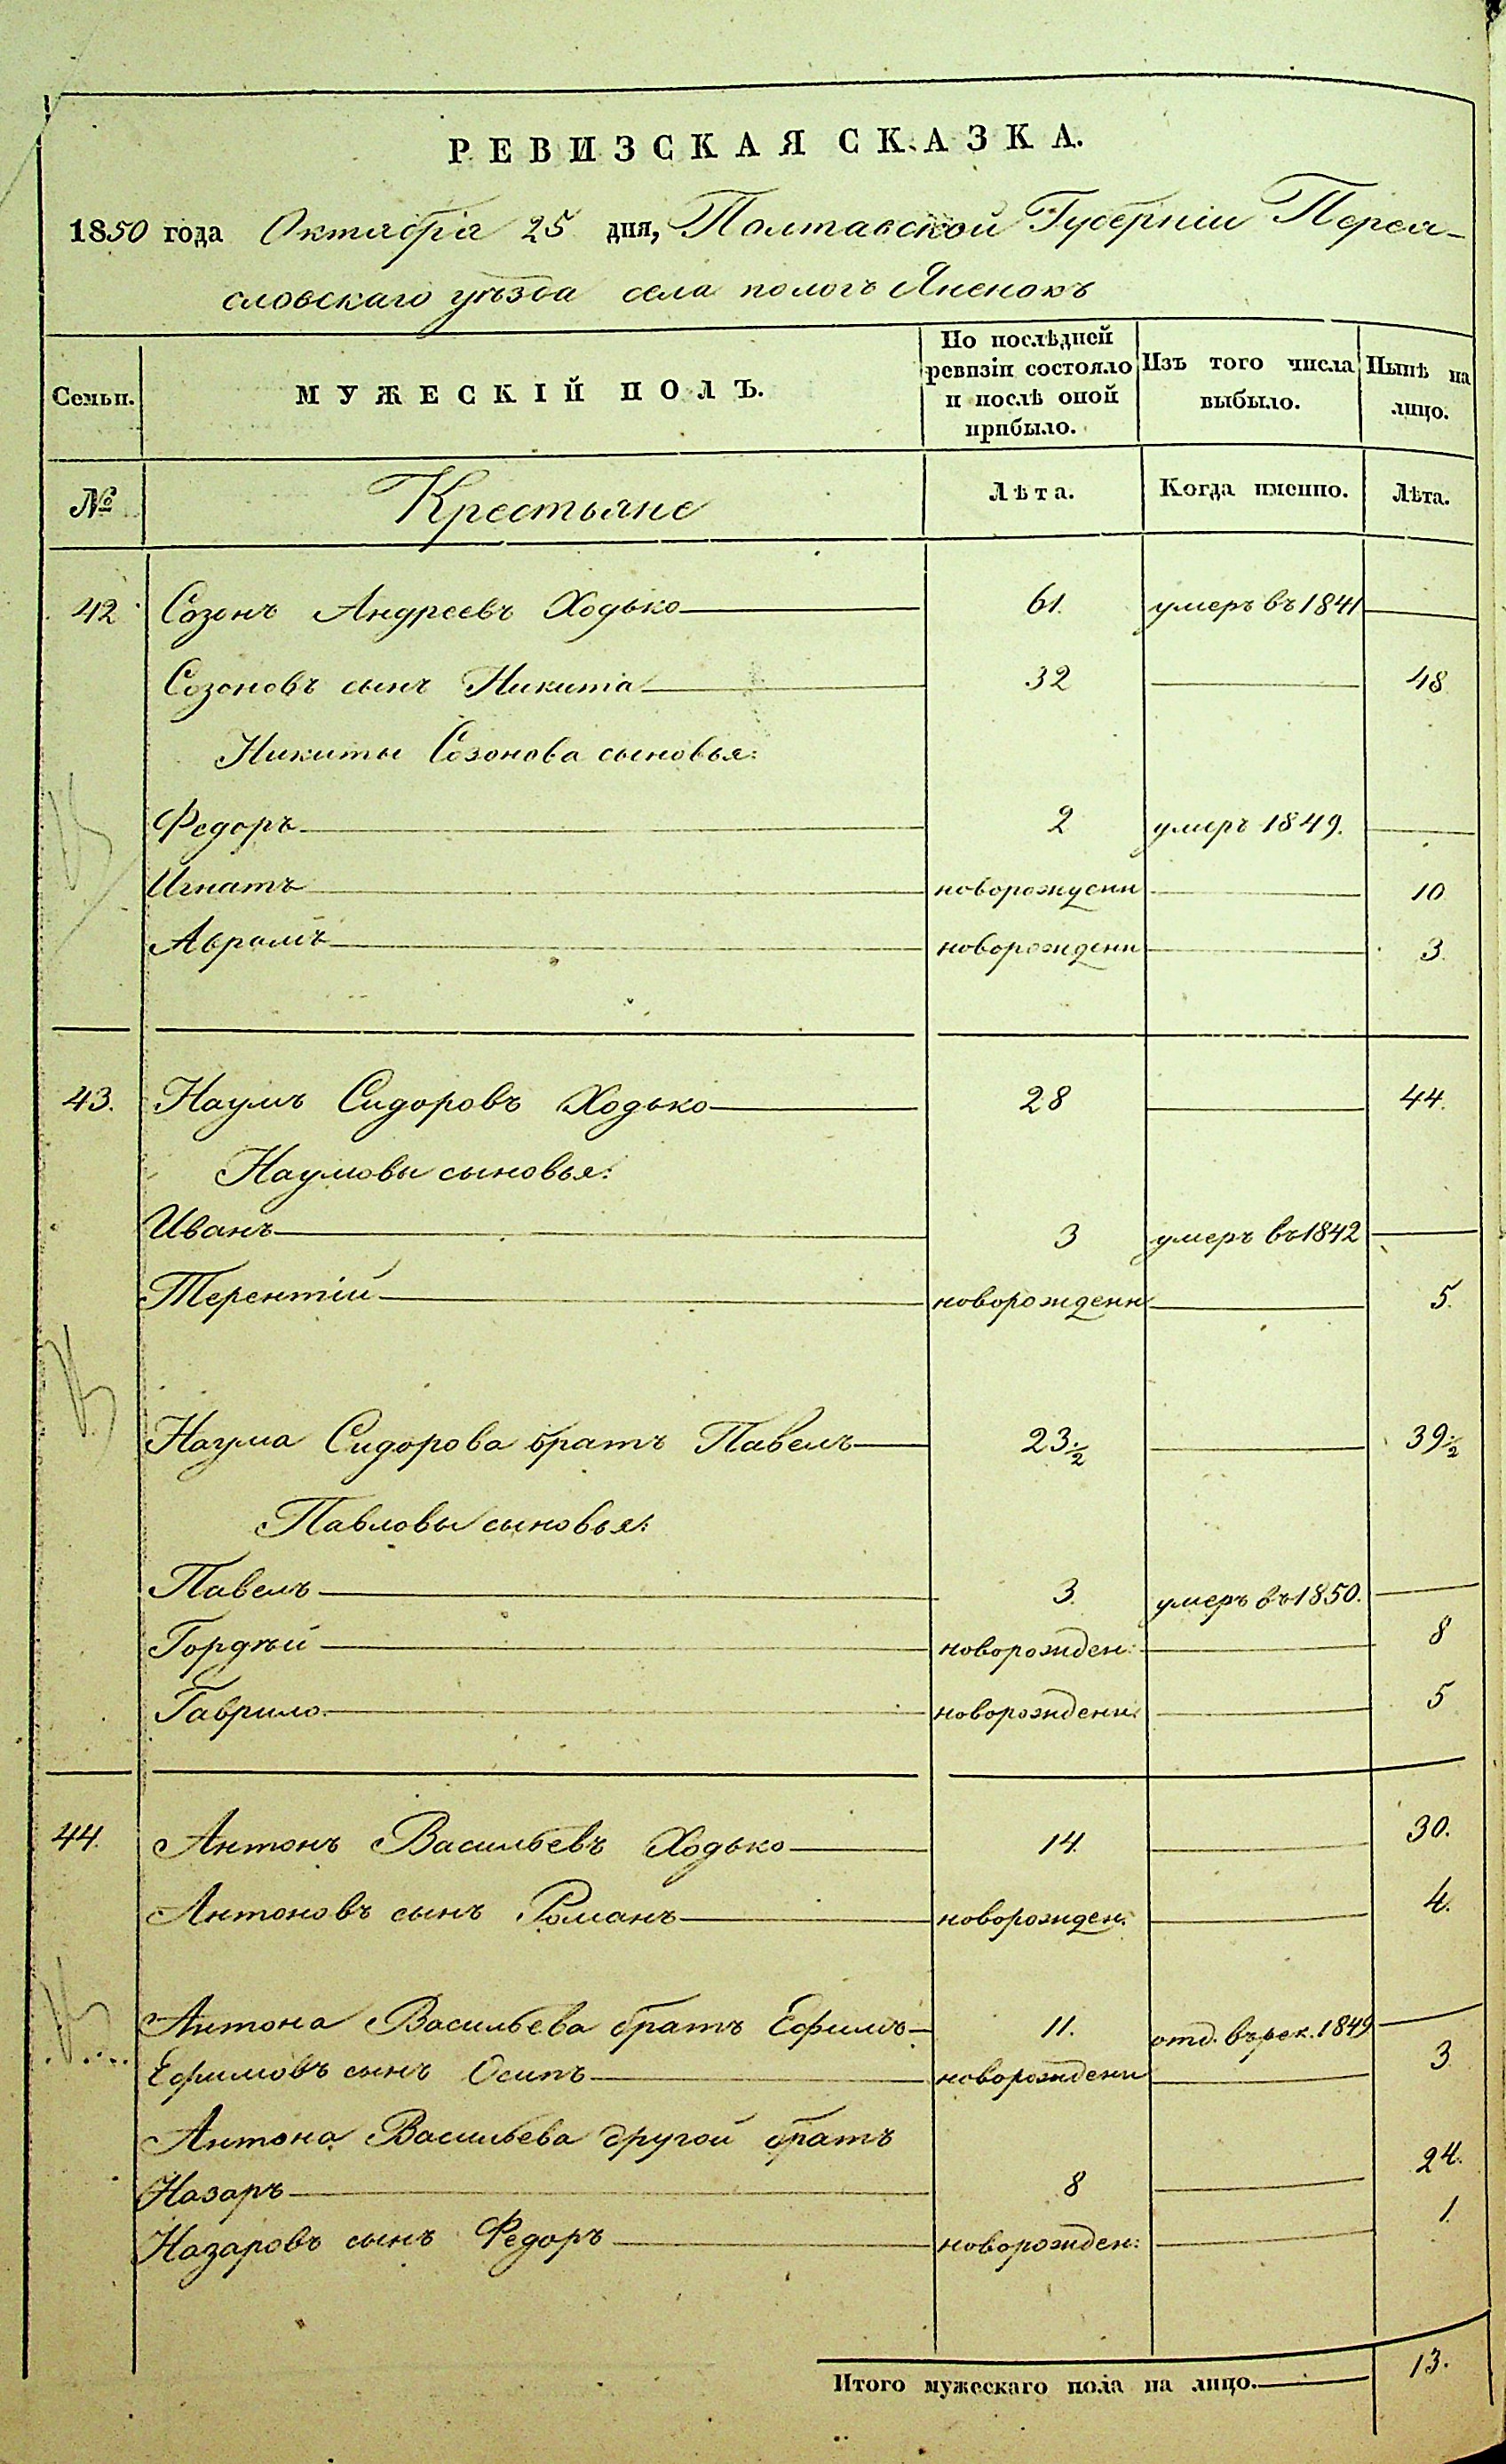 РЕВИЗСКАЯ СКАЗКА.
1850 года Октября 25 дня, Полтавской Губерніи Перея-
словскаго уѣзда села пологъ Яненокъ
Семьи.
МУЖЕСКІЙ ПОЛЪ.
По послѣдней ревизіи состояло и послѣ оной прибыло.
Изъ того числа выбыло.
Нынѣ на лицо.
№ Крестьяне Лѣта. Когда именно. Лѣта.
42 Созонъ Андреевъ Ходько 61. умеръ въ 1841
Созоновъ сынъ Никита 32 48
Никиты Созонова сыновья:
Федоръ 2 умеръ 1849.
Игнатъ новорожденн 10
Аврамъ новорожденн 3.
43. Наумъ Сидоровъ Ходько 28 44.
Наумовы сыновья:
Иванъ 3 умеръ въ 1842
Терентій новорожденн 5.
Наума Сидорова братъ Павелъ 23½ 39½
Павловы сыновья:
Павелъ 3. умеръ въ 1850.
Гордѣй новорожден: 8
Гаврило новорожденн: 5
44. Антонъ Васильевъ Ходько 14. 30.
Антоновъ сынъ Романъ новорожден. 4.
Антона Васильева братъ Ефимъ 11. отд. въ рек. 1849
Ефимовъ сынъ Осипъ новорожденн 3
Антона Васильева другой братъ
Назаръ 8 24.
Назаровъ сынъ Федоръ новорожден: 1.
Итого мужескаго пола на лицо. 13.